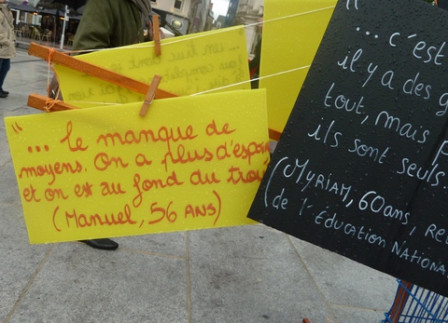 "... Le manque de
moyens. On a plus d'espoir
et on est au fond du trou
(Manuel, 56 ANS)
"... c'est
il y a des g
tout, mais p
ils sont seuls
(MYRIAM, 60ans, RE
de l'ÉDUCATION NATIONA